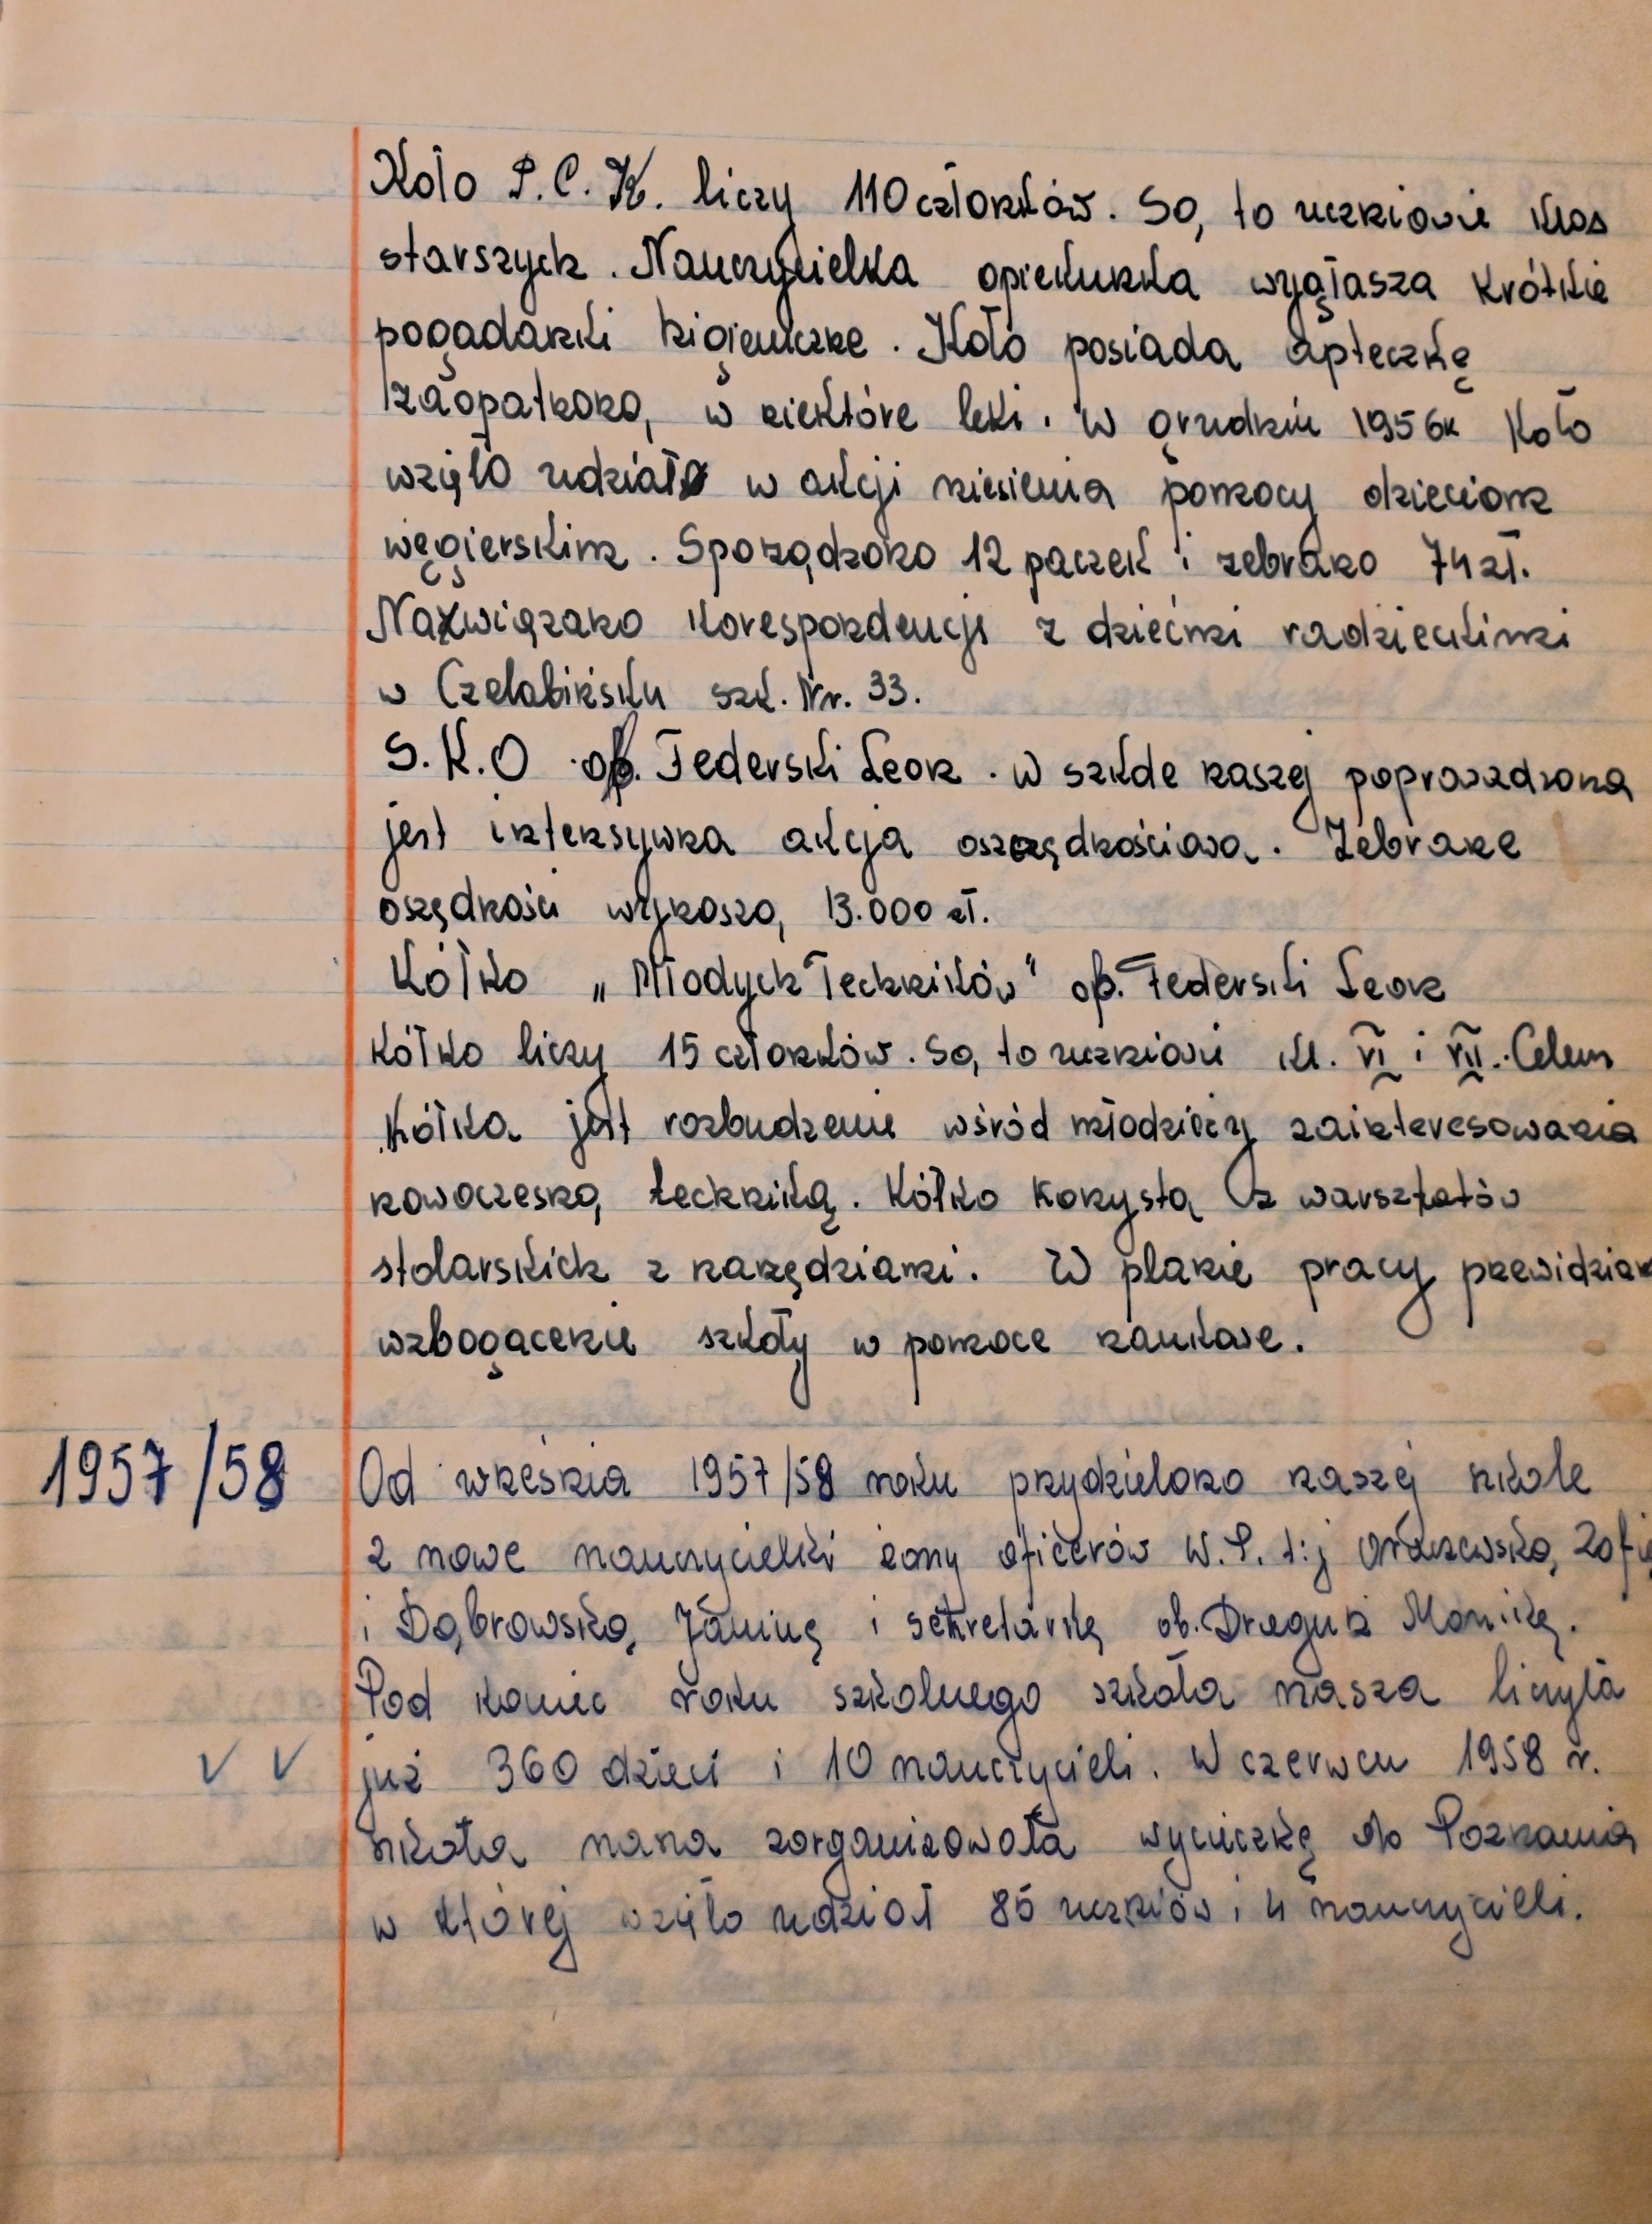 Koło P.C.K. liczy 110 członków. Są to uczniowie klas
starszych. Nauczycielka opiekunka wygłasza krótkie
pogadanki higieniczne. Koło posiada apteczkę
zaopatrzoną w niektóre leki. W grudniu 1956r Koło
wzięło udział w akcji niesienia pomocy dzieciom
węgierskim. Sporządzono 12 paczek i zebrano 74 zł.
Nawiązano korespondencję z dziećmi radzieckimi
w Czelabińsku szk. Nr. 33.
S.K.O op. Federski Leon. W szkole naszej poprowadzona
jest intensywna akcja oszczędnościowa. Zebrane
oszędności wynoszą 13.000 zł.
Kółko „Młodych Techników" op. Federski Leon
Kółko liczy 15 członków. Są to uczniowie kl. VI i VII. Celem
Kółka jest rozbudzenie wśród młodzieży zainteresowania
nowoczesną techniką. Kółko korzysta z warsztatów
stolarskich z narzędziami. W planie pracy przewidziane
wzbogacenie szkoły w pomoce naukowe.
1957/58
Od września 1957/58 roku przydzielono naszej szkole
2 nowe nauczycielki żony oficerów W.P. t:j Zofię
i Dąbrowską Janinę i sekretarkę ob. Monikę.
Pod koniec roku szkolnego szkoła nasza liczyła
już 360 dzieci i 10 nauczycieli. W czerwcu 1958 r.
szkoła nasza zorganizowała wycieczkę do Poznania
w której wzięło udział 86 uczniów i 4 nauczycieli.